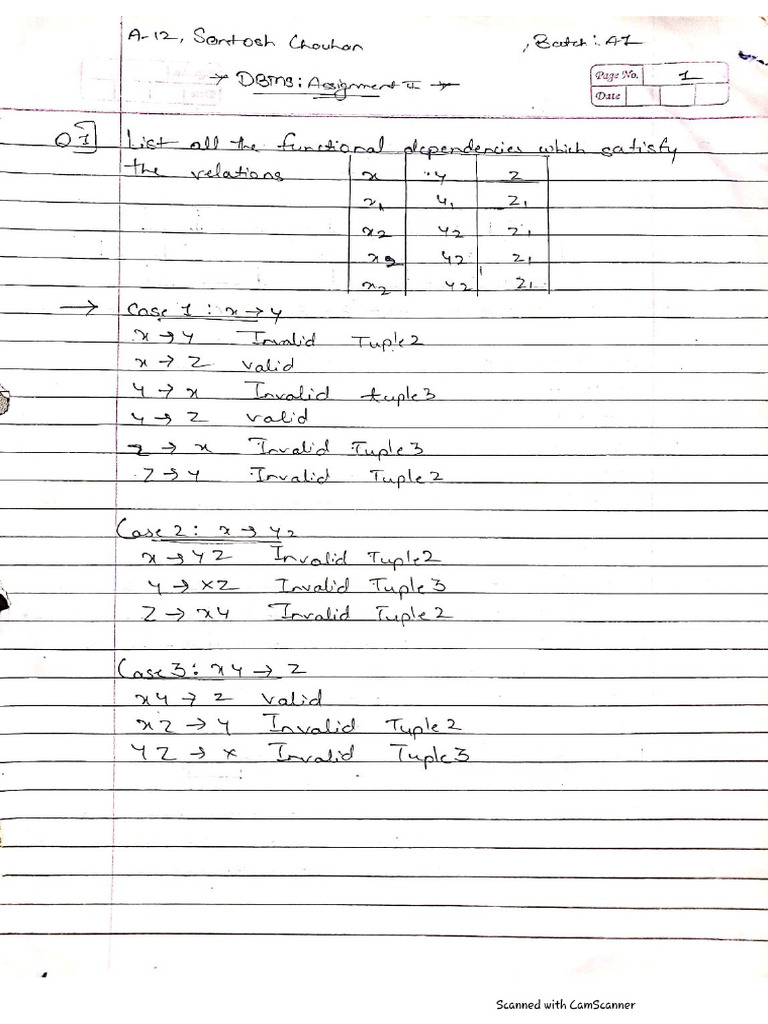 A-12, Santosh Chouhan , Batch: A1
→ DBMS: Assignment II ←
Page No. 1
Date
Q1] List all the functional dependencies which satisfy
the relations
x y z
x1 y1 z1
x2 y2 z1
x2 y2 z1
x2 y2 z1
→ Case 1 : x → y
x → y Invalid Tuple 2
x → z valid
y → x Invalid tuple 3
y → z valid
z → x Invalid Tuple 3
z → y Invalid Tuple 2
Case 2: x → yz
x → yz Invalid Tuple 2
y → xz Invalid Tuple 3
z → xy Invalid Tuple 2
Case 3: xy → z
xy → z valid
xz → y Invalid Tuple 2
yz → x Invalid Tuple 3
Scanned with CamScanner